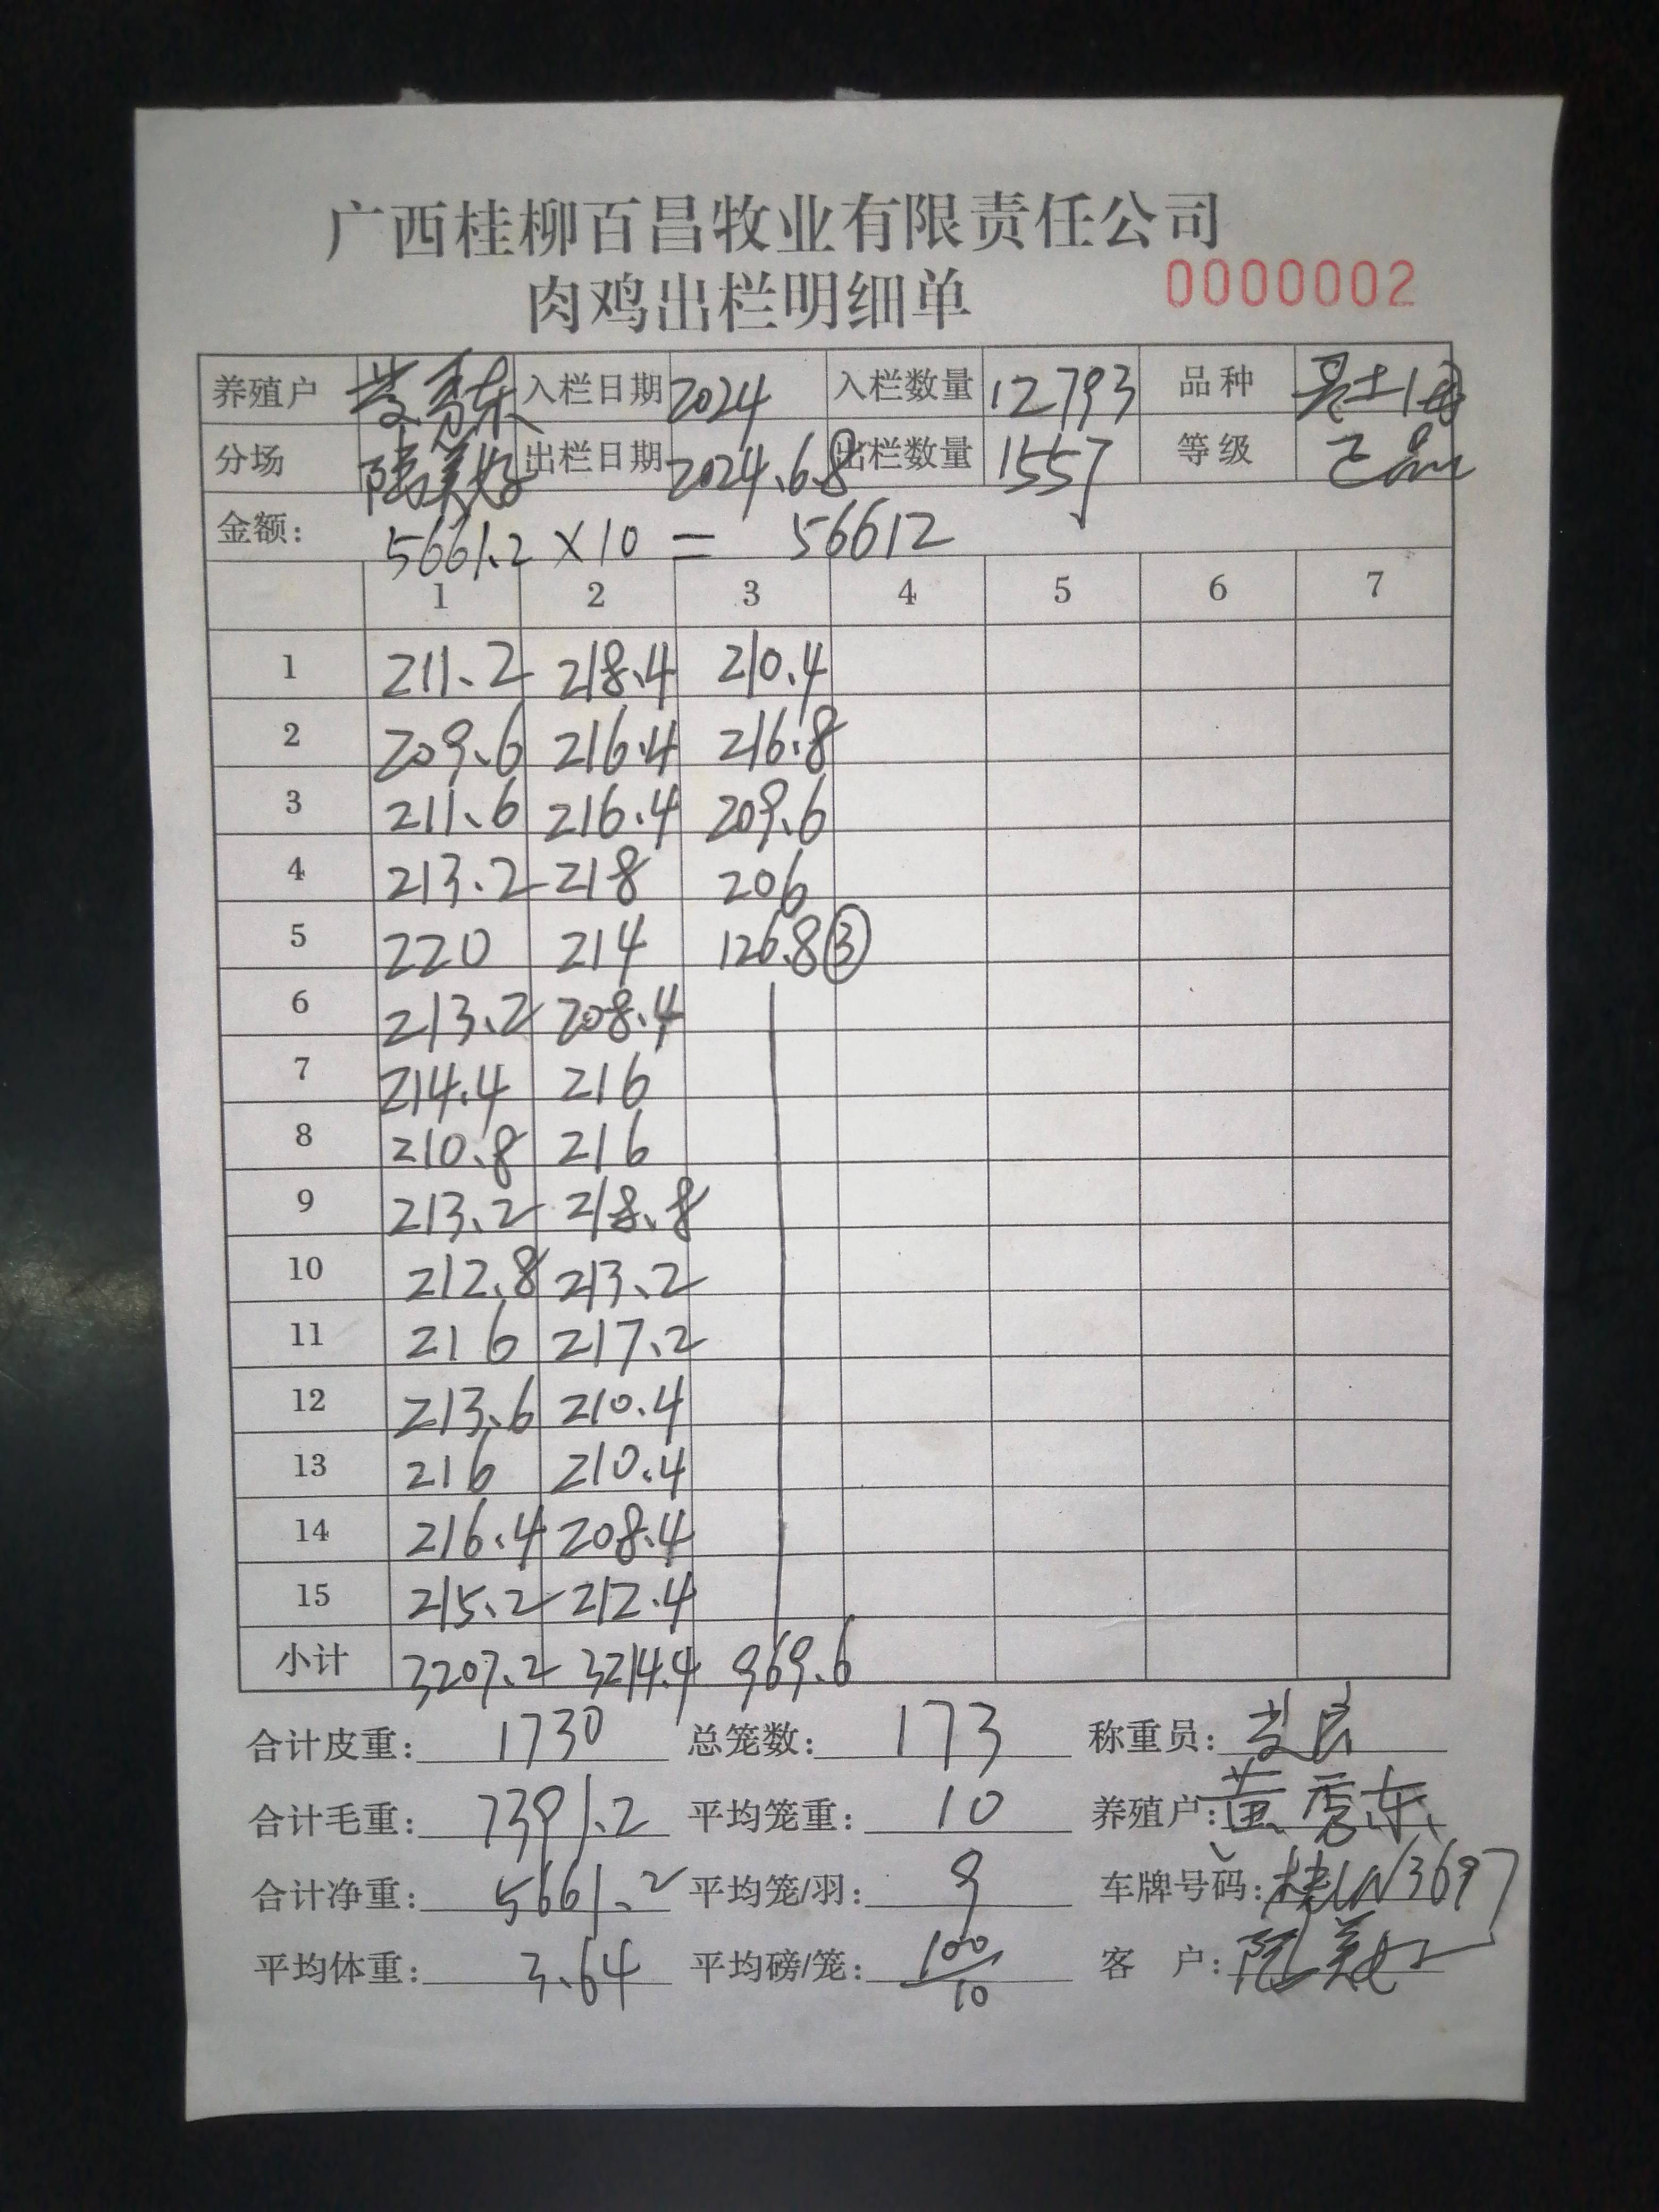 广西桂柳百昌牧业有限责任公司
肉鸡出栏明细单 0000002
养殖户 黄秀东 入栏日期 2024 入栏数量 12793 品种
分场 陆美好 出栏日期 2024.6.8 出栏数量 1557 等级 正品
金额： 5661.2×10= 56612
1 2 3 4 5 6 7
1 211.2 218.4 210.4
2 209.6 216.4 216.8
3 211.6 216.4 209.6
4 213.2 218 206
5 220 214 126.8 ③
6 213.2 208.4
7 214.4 216
8 210.8 216
9 213.2 218.8
10 212.8 213.2
11 216 217.2
12 213.6 210.4
13 216 210.4
14 216.4 208.4
15 215.2 212.4
小计 3207.2 3214.4 969.6
合计皮重： 1730 总笼数： 173 称重员：
合计毛重： 7391.2 平均笼重： 10 养殖户： 黄秀东
合计净重： 5661.2 平均笼/羽： 9 车牌号码： 桂LW3697
平均体重： 3.64 平均磅/笼： 100/10 客 户： 陆美好